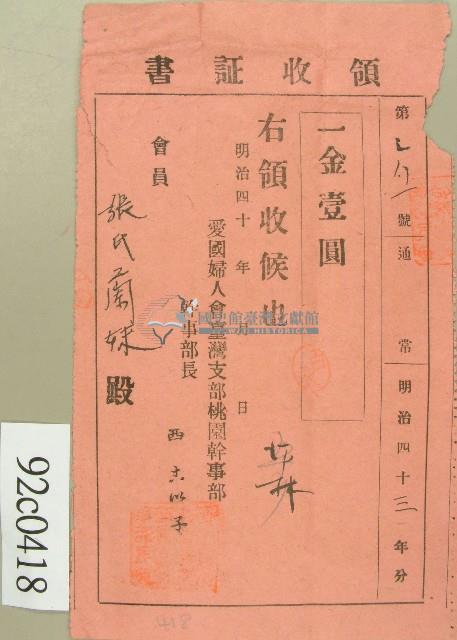 領收証書
第 號通常明治四十三年分
一金壹圓
右領收候也
明治四十年 月 日
愛國婦人會臺灣支部桃園幹事部
幹事部長
西
會員
張氏蘭妹殿
國史館臺灣文獻館
TAIWAN HISTORICA
92c0418
418